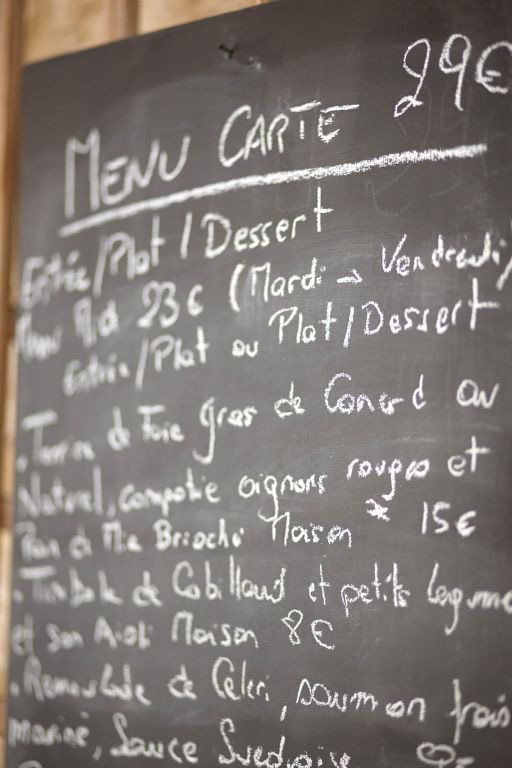 MENU CARTE 29€
Entrée/Plat/Dessert
Menu Midi 23€ (Mardi → Vendredi)
Entrée/Plat ou Plat/Dessert
. Terrine de Foie gras de Canard au
Naturel, compotie oignons rouges et
Pain de Mie Brioché Maison * 15€
. Timbale de Cabillaud et petits legume
et son Aioli Maison 8€
. Remoulade de Celeri, saumon frais
mariné, Sauce Suedoise